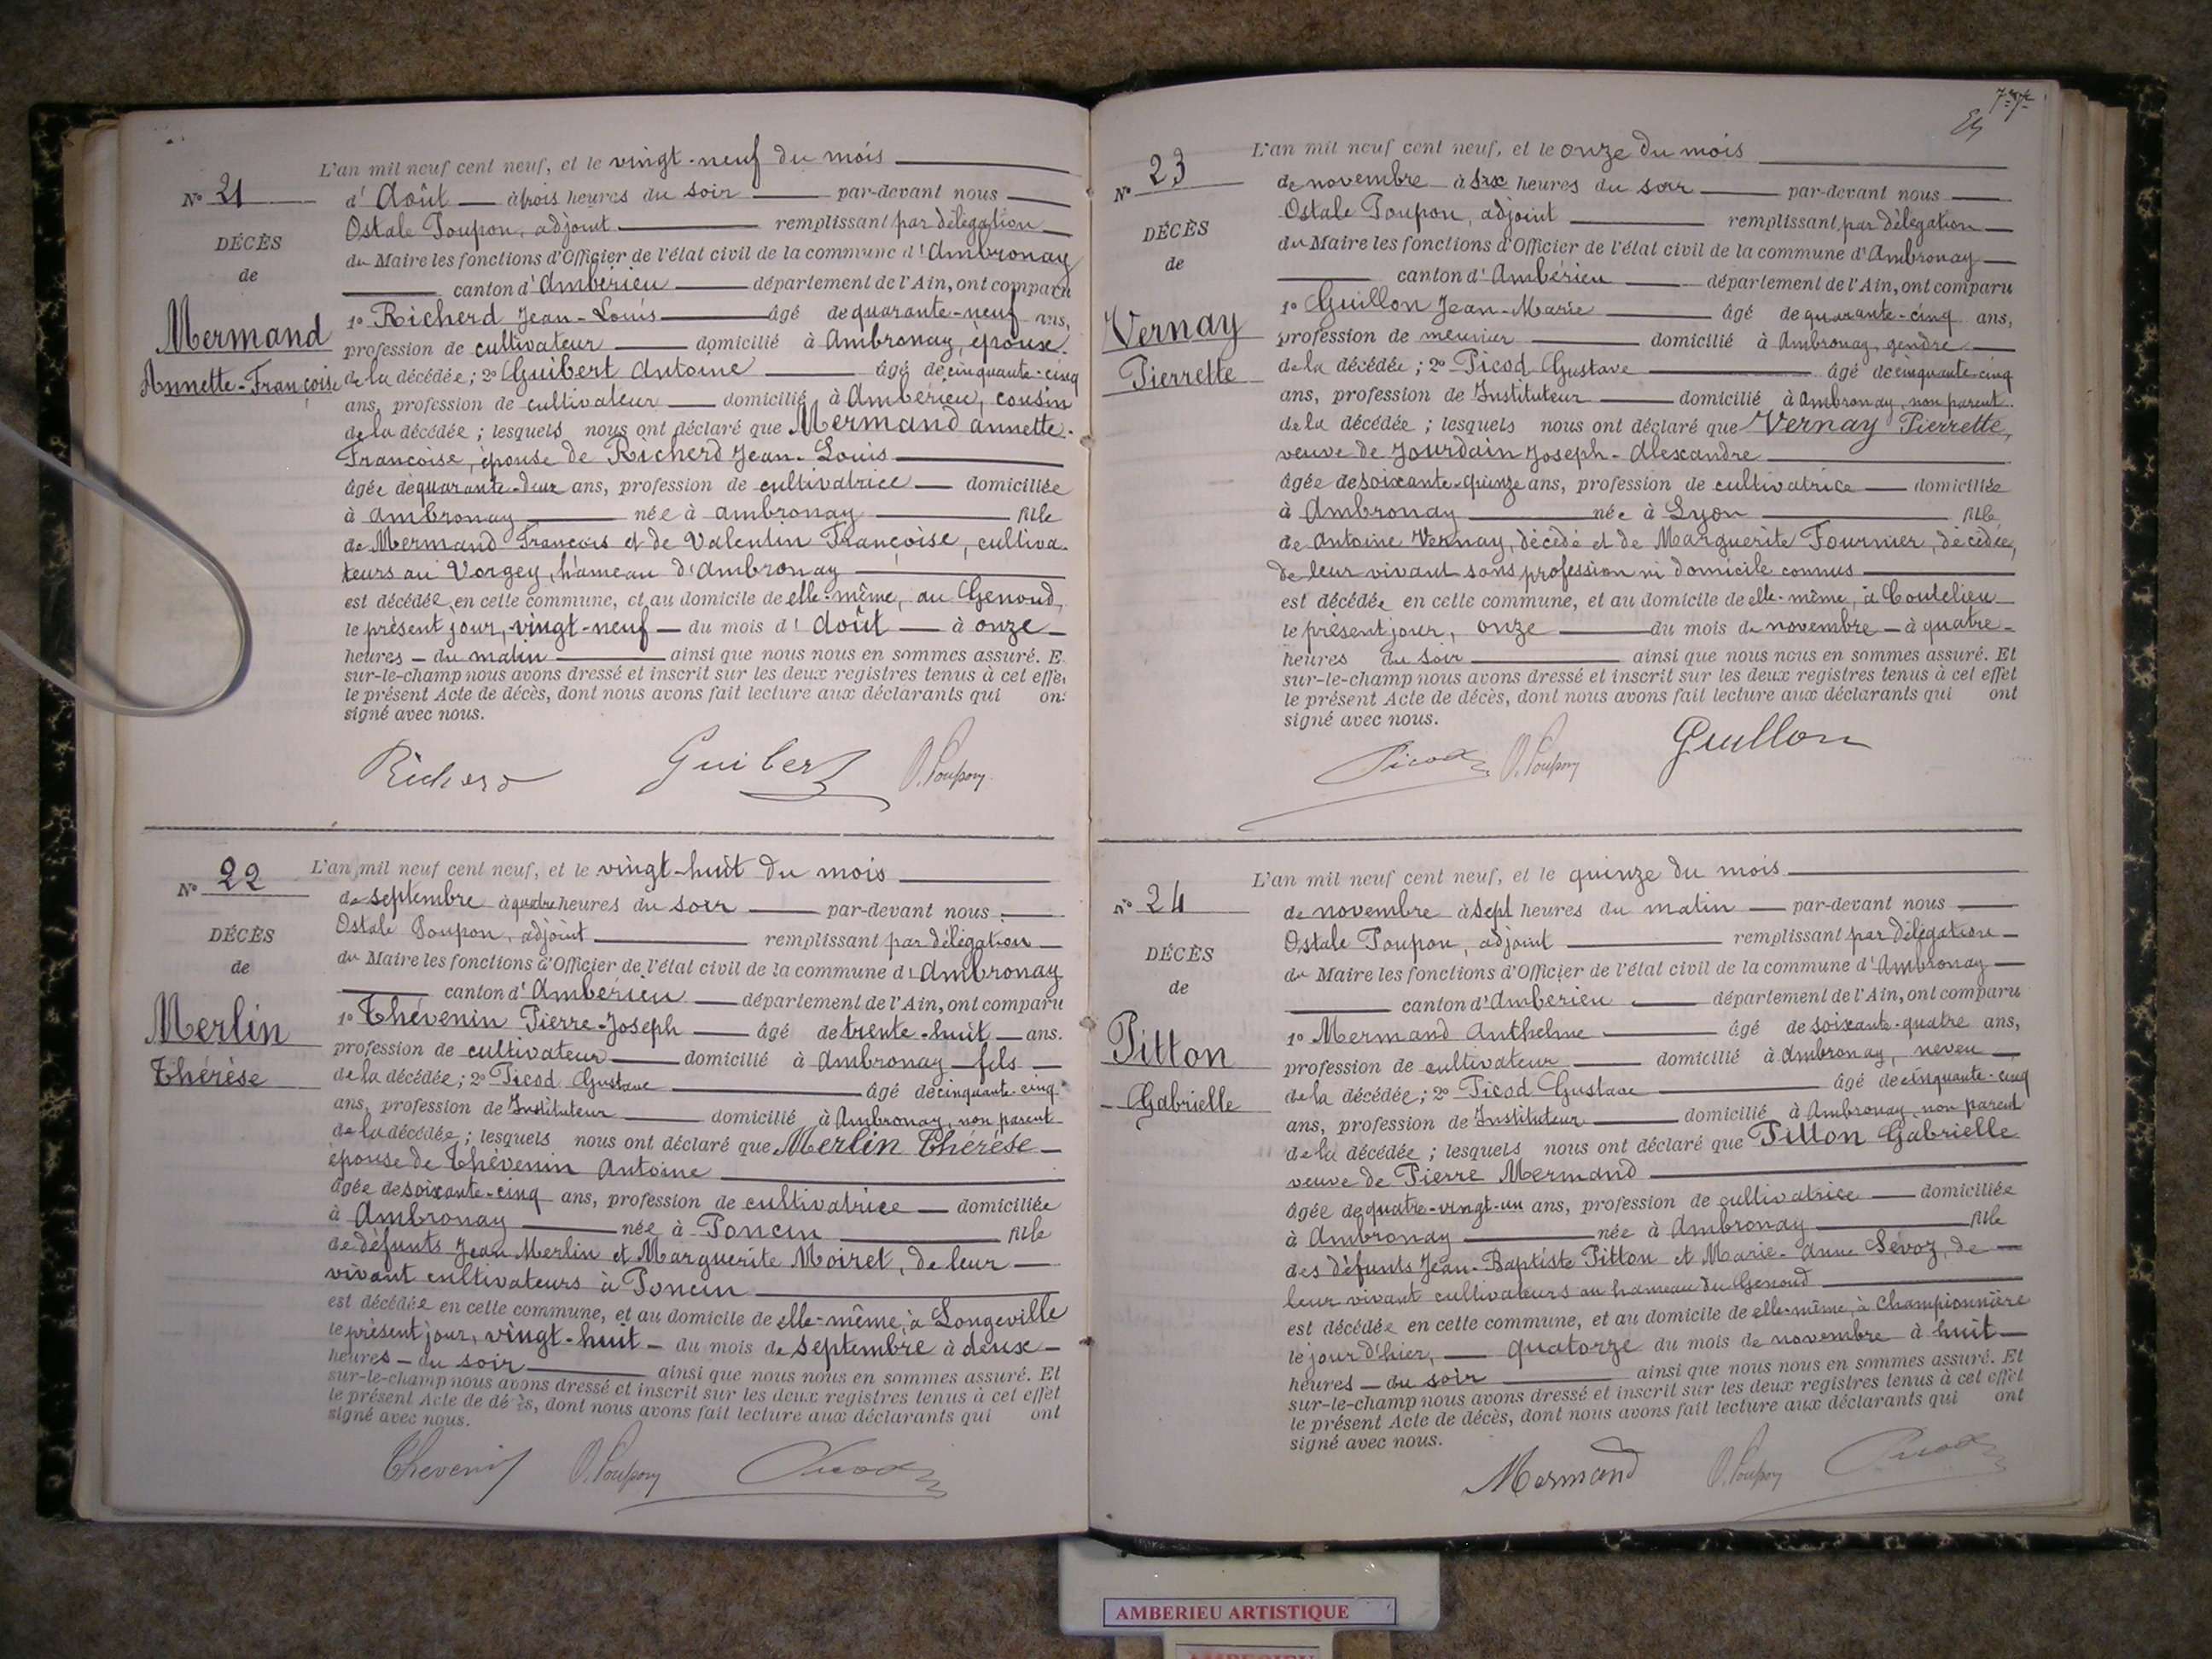 L'an mil neuf cent neuf, et le vingt-neuf du mois
N° 21
d'Août à trois heures du soir par-devant nous
Ostale Poupon, adjoint remplissant par délégation
DÉCÈS
du Maire les fonctions d'Officier de l'état civil de la commune d'Ambronay
de
canton d'Ambérieu département de l'Ain, ont comparu
Mermand
1° Richerd Jean-Louis âgé de quarante-neuf ans,
profession de cultivateur domicilié à Ambronay, époux
Annette-Françoise
de la décédée; 2° Guibert Antoine âgé de cinquante-cinq
ans, profession de cultivateur domicilié à Ambérieu, cousin
de la décédée; lesquels nous ont déclaré que Mermand Annette-
Françoise, épouse de Richerd Jean-Louis
âgée de quarante-deux ans, profession de cultivatrice domiciliée
à Ambronay née à Ambronay fille
de Mermand François et de Valentin Françoise, cultiva-
teurs au Vorgey, hameau d'Ambronay
est décédée en cette commune, et au domicile de elle-même, au Genoud,
le présent jour, vingt-neuf du mois d'Août à onze
heures du matin ainsi que nous nous en sommes assuré. E
sur-le-champ nous avons dressé et inscrit sur les deux registres tenus à cet effe
le présent Acte de décès, dont nous avons fait lecture aux déclarants qui on
signé avec nous.
Richerd Guibert O. Poupon
L'an mil neuf cent neuf, et le vingt-huit du mois
N° 22
de septembre à quatre heures du soir par-devant nous
Ostale Poupon, adjoint remplissant par délégation
DÉCÈS
du Maire les fonctions d'Officier de l'état civil de la commune d'Ambronay
de
canton d'Ambérieu département de l'Ain, ont comparu
Merlin
1° Thévenin Pierre-Joseph âgé de trente-huit ans.
profession de cultivateur domicilié à Ambronay fils
Thérèse
de la décédée; 2° Picod Gustave âgé de cinquante-cinq
ans, profession de Instituteur domicilié à Ambronay, non parent
de la décédée; lesquels nous ont déclaré que Merlin Thérèse
épouse de Thévenin Antoine
âgée de soixante-cinq ans, profession de cultivatrice domiciliée
à Ambronay née à Poncin fille
de défunts Jean Merlin et Marguerite Moiret, de leur
vivant cultivateurs à Poncin
est décédée en cette commune, et au domicile de elle-même, à Longeville
le présent jour, vingt-huit du mois de septembre à deux
heures du soir ainsi que nous nous en sommes assuré. Et
sur-le-champ nous avons dressé et inscrit sur les deux registres tenus à cet effet
le présent Acte de décès, dont nous avons fait lecture aux déclarants qui ont
signé avec nous.
Thevenin O. Poupon Picod
L'an mil neuf cent neuf, et le onze du mois
N° 23
de novembre à six heures du soir par-devant nous
Ostale Poupon, adjoint remplissant par délégation
DÉCÈS
du Maire les fonctions d'Officier de l'état civil de la commune d'Ambronay
de
canton d'Ambérieu département de l'Ain, ont comparu
Vernay
1° Guillon Jean-Marie âgé de quarante-cinq ans,
profession de meunier domicilié à Ambronay, gendre
Pierrette
de la décédée; 2° Picod Gustave âgé de cinquante-cinq
ans, profession de Instituteur domicilié à Ambronay, non parent.
de la décédée; lesquels nous ont déclaré que Vernay Pierrette,
veuve de Jourdain Joseph-Alexandre
âgée de soixante-quinze ans, profession de cultivatrice domiciliée
à Ambronay née à Lyon fille
de Antoine Vernay, décédé et de Marguerite Fournier, décédée,
de leur vivant sans profession ni domicile connus
est décédée en cette commune, et au domicile de elle-même, à Coutelieu
le présent jour, onze du mois de novembre à quatre
heures du soir ainsi que nous nous en sommes assuré. Et
sur-le-champ nous avons dressé et inscrit sur les deux registres tenus à cet effet
le présent Acte de décès, dont nous avons fait lecture aux déclarants qui ont
signé avec nous.
Picod O. Poupon Guillon
L'an mil neuf cent neuf, et le quinze du mois
N° 24
de novembre à sept heures du matin par-devant nous
Ostale Poupon, adjoint remplissant par délégation
DÉCÈS
du Maire les fonctions d'Officier de l'état civil de la commune d'Ambronay
de
canton d'Ambérieu département de l'Ain, ont comparu
Pitton
1° Mermand Anthelme âgé de soixante-quatre ans,
profession de cultivateur domicilié à Ambronay, neveu
Gabrielle
de la décédée; 2° Picod Gustave âgé de cinquante-cinq
ans, profession de Instituteur domicilié à Ambronay, non parent
de la décédée; lesquels nous ont déclaré que Pitton Gabrielle
veuve de Pierre Mermand
âgée de quatre-vingt-un ans, profession de cultivatrice domiciliée
à Ambronay née à Ambronay fille
des défunts Jean-Baptiste Pitton et Marie-Anne Sévoz, de
leur vivant cultivateurs au hameau du Genoud
est décédée en cette commune, et au domicile de elle-même, à Championnière
le jour d'hier, quatorze du mois de novembre à huit
heures du soir ainsi que nous nous en sommes assuré. Et
sur-le-champ nous avons dressé et inscrit sur les deux registres tenus à cet effet
le présent Acte de décès, dont nous avons fait lecture aux déclarants qui ont
signé avec nous.
Mermand O. Poupon Picod
AMBERIEU ARTISTIQUE